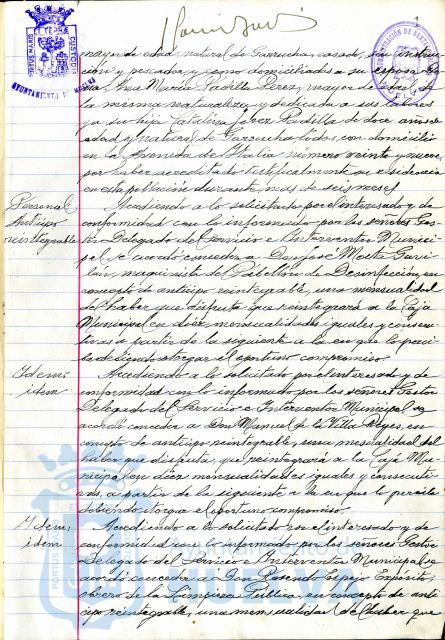 mayor de edad, natural de Garrucha, casado, sin instruc-
ción y pescador, y como domiciliados a su esposa Do-
ña Ana María Padilla Perez, mayor de edad, de
la misma naturaleza y dedicada a sus labores
ya su hija Catalina Perez Padilla de doce años de
edad y natural de Garrucha todos, con domicilio
en la Avenida de Italia número veinte y nueve,
por haber acreditado testificalmente su residencia
en esta población durante mas de seis meses.
Personal
Anticipo
reintegrable
Accediendo a lo solicitado por el interesado y de
conformidad con lo informado por los señores Ges-
tor Delegado del Servicio e Interventor Municip-
al se acordó conceder a Don José Mesta Gavi-
lán, maquinista del Pabellón de Desinfección, en
concepto de anticipo reintegrable, una mensualidad
del haber que disfruta que reintegrará a la Caja
Municipal en diez mensualidades iguales y consecu-
tivas a partir de la siguiente a la en que lo perci-
ba debiendo otorgar el oportuno compromiso.
Idem
idem
Accediendo a lo solicitado por el interesado y de
conformidad con lo informado por los señores Gestor
Delegado del Servicio e Interventor Municipal se
acordó conceder a Don Manuel de la Villa Reyes, en
concepto de anticipo reintegrable, una mensualidad del
haber que disfruta, que reintegrará a la Caja Mu-
nicipal en diez mensualidades iguales y consecuti-
vas, a partir de la siguiente a la en que lo perciba
debiendo otorgar el oportuno compromiso.
Idem
idem
Accediendo a lo solicitado por el interesado y de
conformidad con lo informado por los señores Gestor
Delegado del Servicio e Interventor Municipal se
acordó conceder a Don Rosendo Espejo Expósito,
obrero de la Limpieza Pública, en concepto de anti-
cipo reintegrable, una mensualidad del haber que